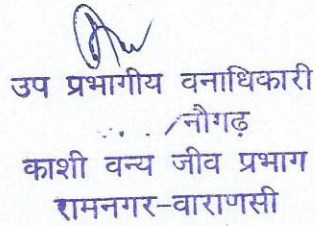 उप प्रभागीय वनाधिकारी
नौगढ़
काशी वन्य जीव प्रभाग
रामनगर-वाराणसी